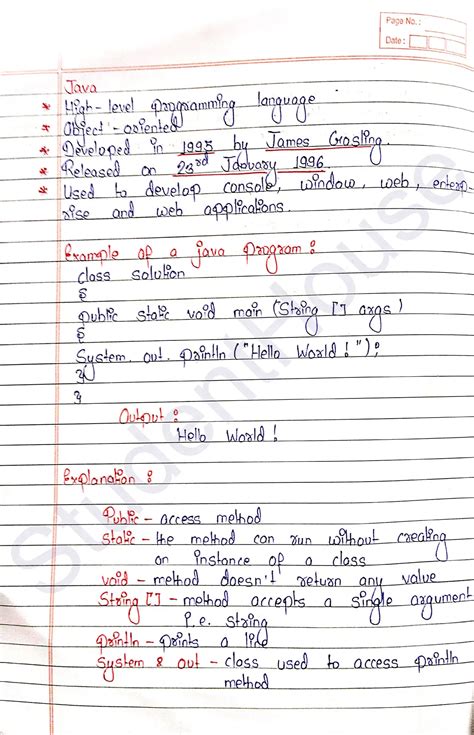 Page No.:
Date:
Java
* High-level programming language
* Object-oriented
* Developed in 1995 by James Gosling.
* Released on 23rd January 1996.
* Used to develop console, window, web, enterp-
rise and web applications.
Example of a java program:
class solution
{
public static void main (String [] args)
{
System.out.println ("Hello World!");
}
}
Output:
Hello World!
Explanation:
Public - access method
Static - the method can run without creating
an instance of a class
void - method doesn't return any value
String [] - method accepts a single argument
i.e. string
println - prints a line
System & out - class used to access println
method
StudentHouse